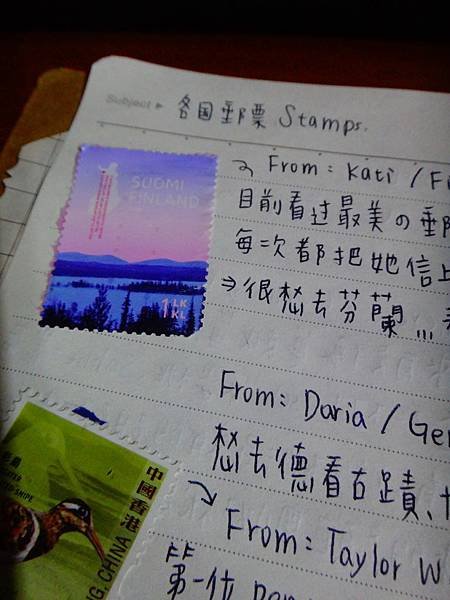 Subject ▸ 各国郵票 Stamps.
SUOMI
FINLAND
1 LK
KL
From: Kati /
目前看过最美の郵
每次都把她信上
⇒很想去芬蘭...
From: Daria / Ger
想去德看古蹟、
From: Taylor W
第一位 pen
中國香港
NG, CHINA
SNIPE